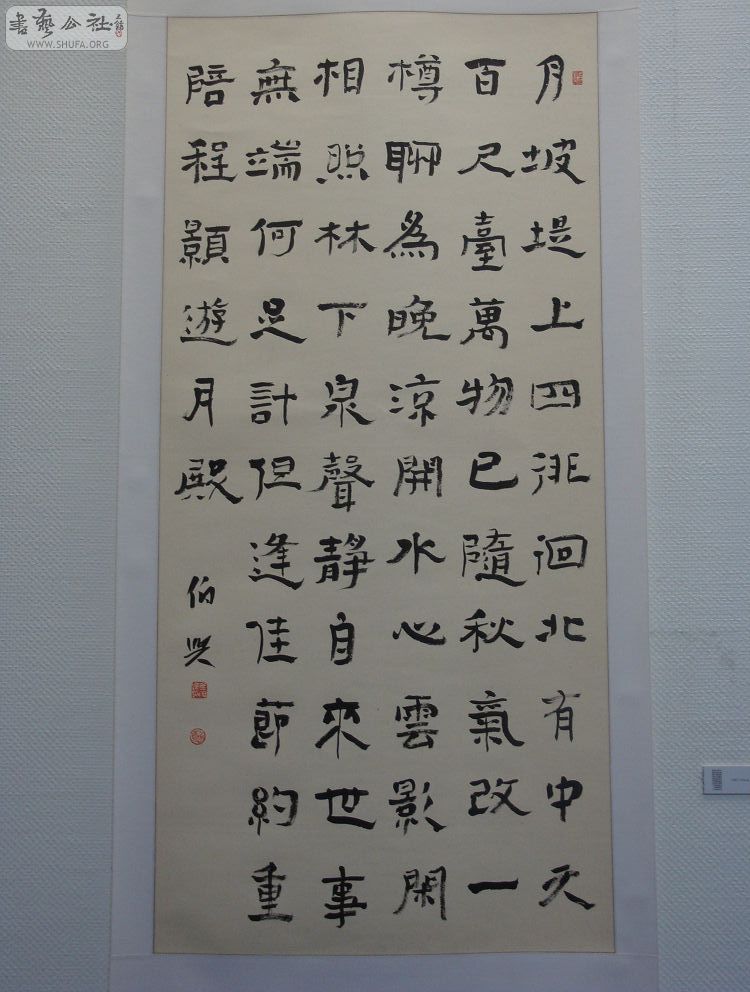 書藝公社
WWW.SHUFA.ORG
月坡堤上四徘徊北有中天
百尺臺萬物已隨秋氣改一
樽聊爲晚涼開水心雲影閑
相照林下泉聲靜自來世事
無端何足計但逢佳節約重
陪程顥遊月殿
伯